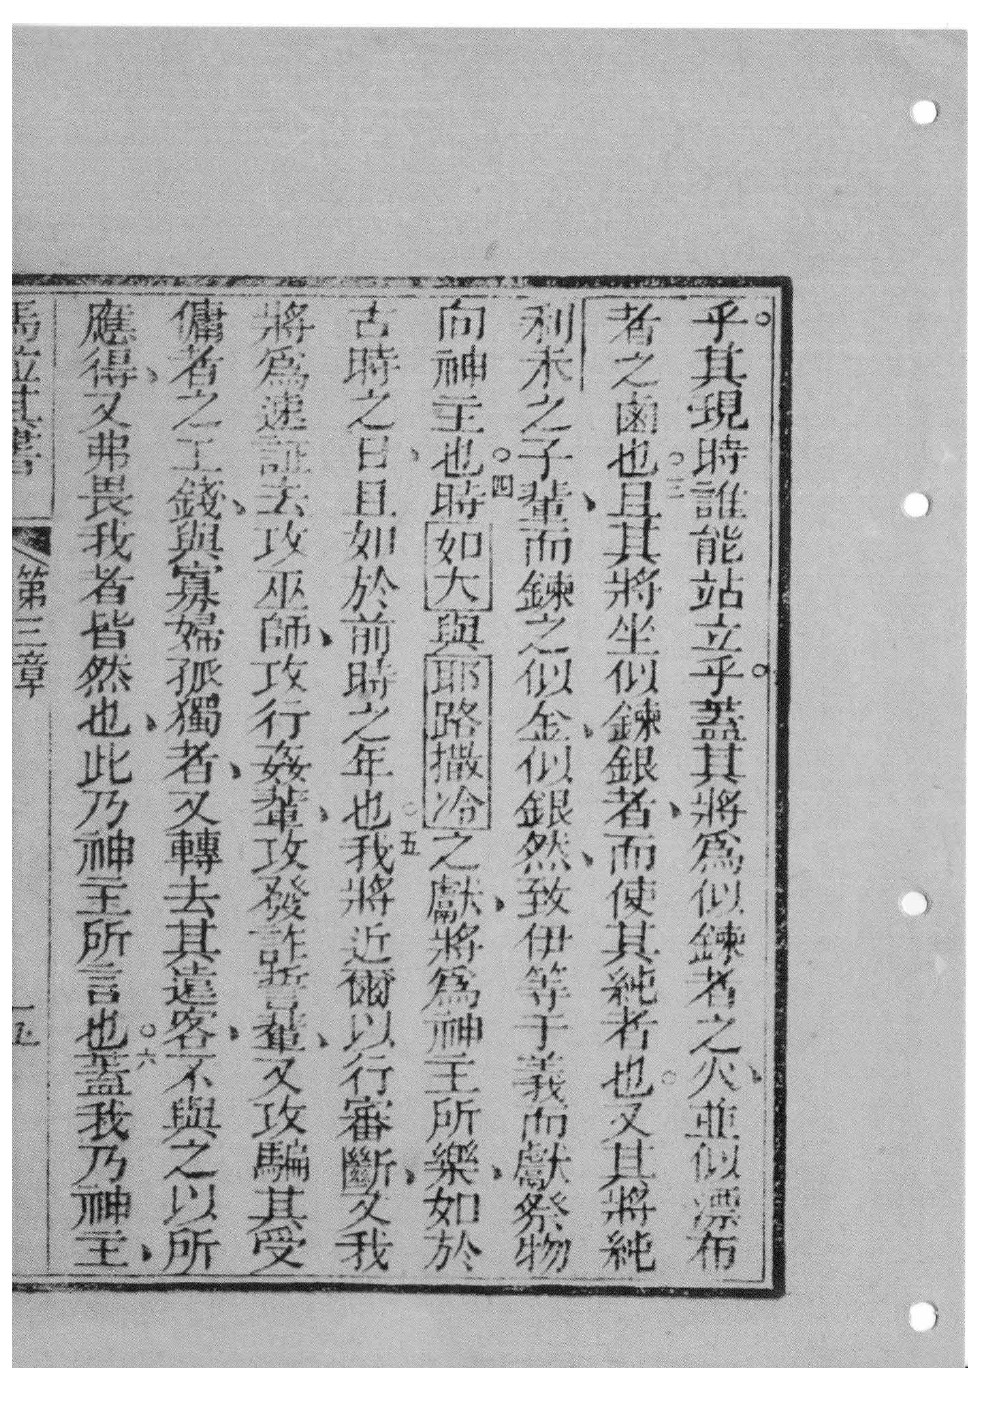 乎其現時誰能站立乎蓋其將爲似鍊者之火並似漂布
者之鹵也三且其將坐似鍊銀者而使其純者也又其將純
利未之子輩而鍊之似金似銀然致伊等于義而獻祭物
向神主也四時如大與耶路撒冷之獻將爲神主所樂如於
古時之日且如於前時之年也五我將近爾以行審斷又我
將爲速証去攻巫師攻行姦輩攻發詐誓輩又攻騙其受
傭者之工錢與寡婦孤獨者又轉去其遠客不與之以所
應得又弗畏我者皆然也此乃神主所言也六蓋我乃神主
馬拉其書 第三章 一五